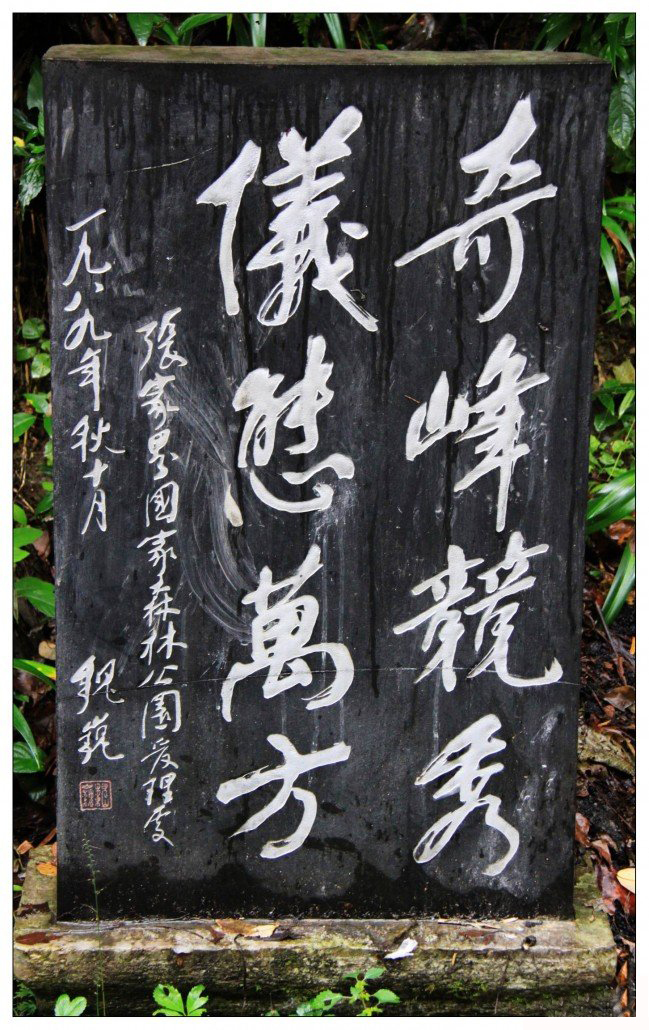 奇峰競秀
儀態萬方
張家界國家森林公園管理处
一九八九年秋十月
魏巍